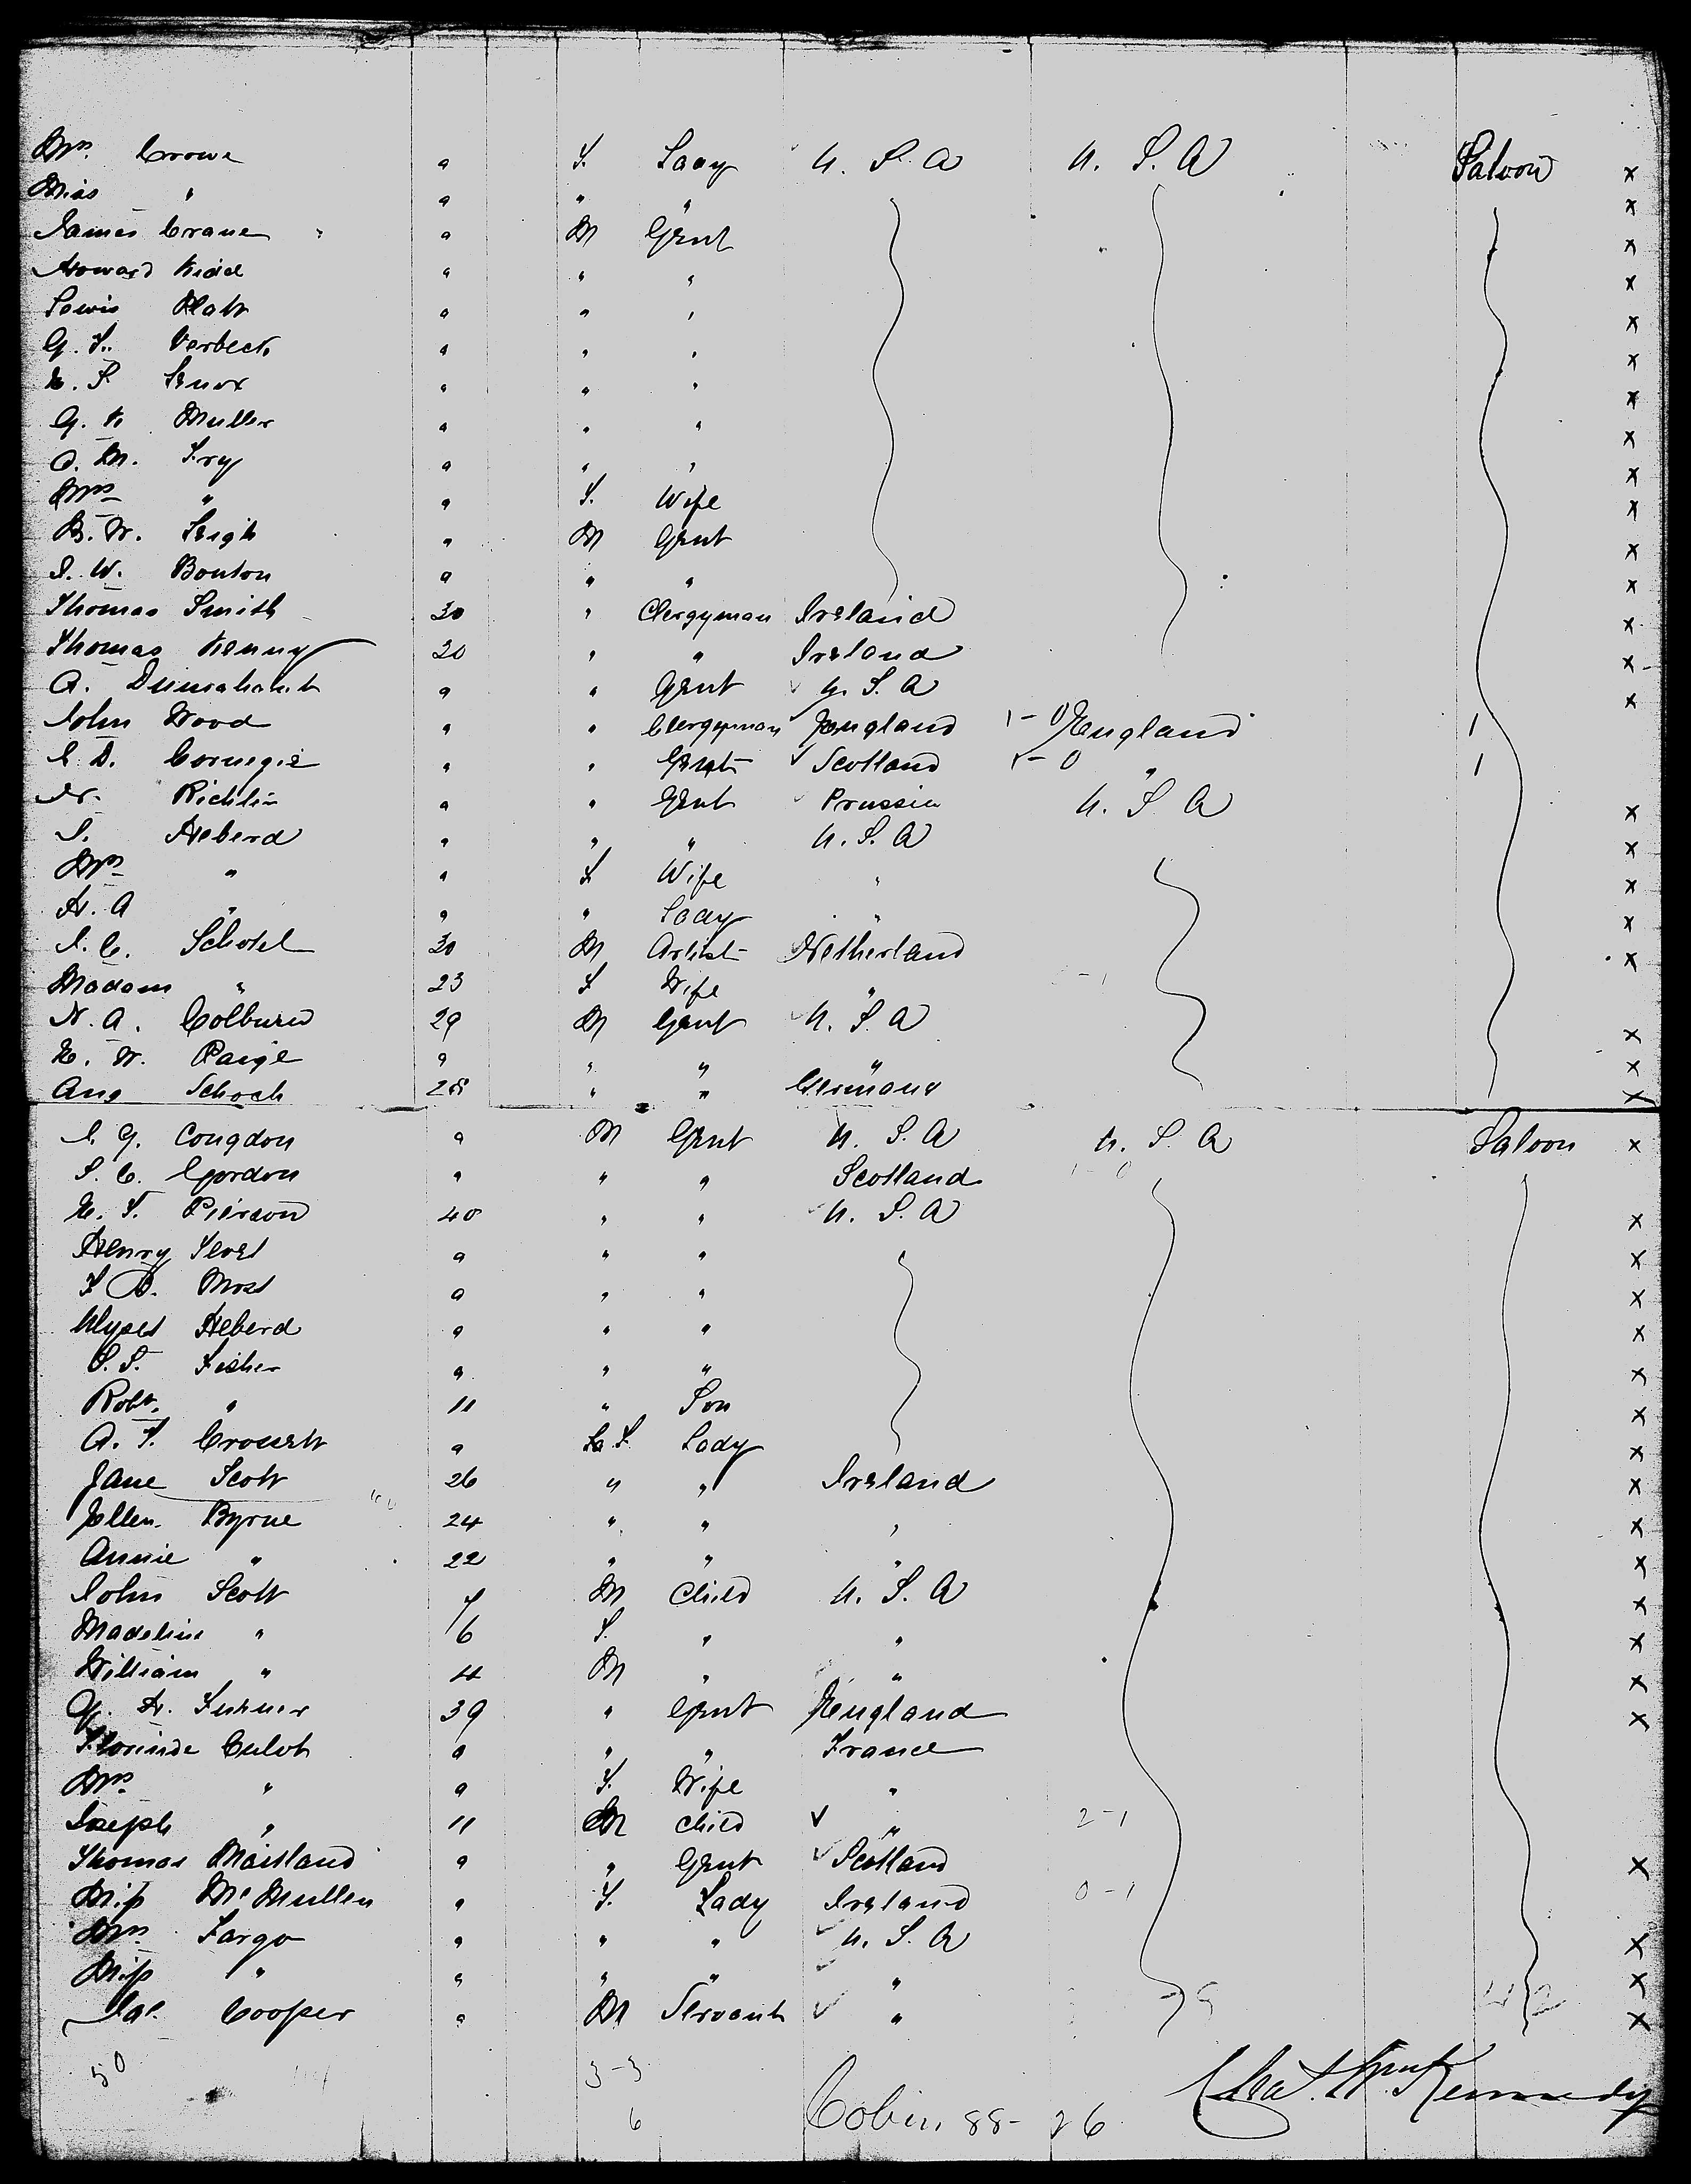 Mrs. Crowe a F. Lady U. S. A U. S. A Saloon x
Miss " a " " x
James Crane a M Gent x
Howard Kidd a " " x
Lewis Platt a " " x
G. F. Verbeck a " " x
E. S. Knox a " " x
G. K. Muller a " " x
O. M. Fry a " " x
Mrs " a F. Wife x
B. W. Leigh a M Gent x
J. W. Bouton a " " x
Thomas Smith 30 " Clergyman Ireland x
Thomas Kenny 20 " " Ireland x
A. a " Gent U. S. A x
John Wood a " Clergyman England 1-0 England 1
J. D. Cornegie a " Gent Scotland 1-0 " 1
N. Richlin a " Gent Prussia U. S. A x
S. Heberd a " " U. S. A x
Mrs " a F Wife " x
H. A " a " Lady " x
J. C. Schotel 30 M Artist Netherland x
Madam " 23 F Wife " -1
N. A. Colburn 29 M Gent U. S. A x
E. W. Paige a " " " x
Aug Schoch 28 " " Germany x
J. G. Congdon a M Gent U. S. A U. S. A Saloon x
S. C. Gordon a " " Scotland 1-0
E. T. Pierson 40 " " U. S. A x
Henry a " " x
F B. Moss a " " x
Ulyses Heberd a " " x
S. S. Fisher a " " x
Robt. " 11 " Son x
A. T. Crossett a La F. Lady x
Jane Scott 26 " " Ireland x
Ellen Byrne 24 " " " x
Annie " 22 " " " x
John Scott 7 M Child U. S. A x
Madeline " 6 F. " " x
William " 4 M " " x
G. H. Turner 39 " Gent England x
Florinde Culot a " " France
Mrs. " a F. Wife "
Joseph " 11 M Child " 2-1
Thomas Maitland a " Gent Scotland x
Miss McMullen a F. Lady Ireland 0-1
Mrs. Fargo a " " U. S. A x
Miss " a " " " x
Jas. Cooper a M Servant " x
50 3-3
6 Cobin 88-26 Kennedy